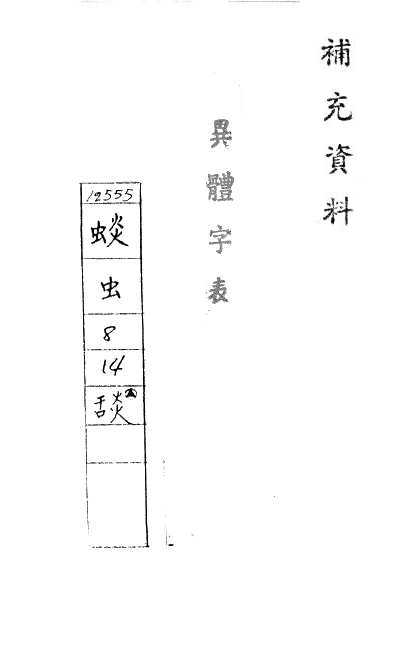 補充資料
異體字表
12555
蝅
虫
8
14
舕